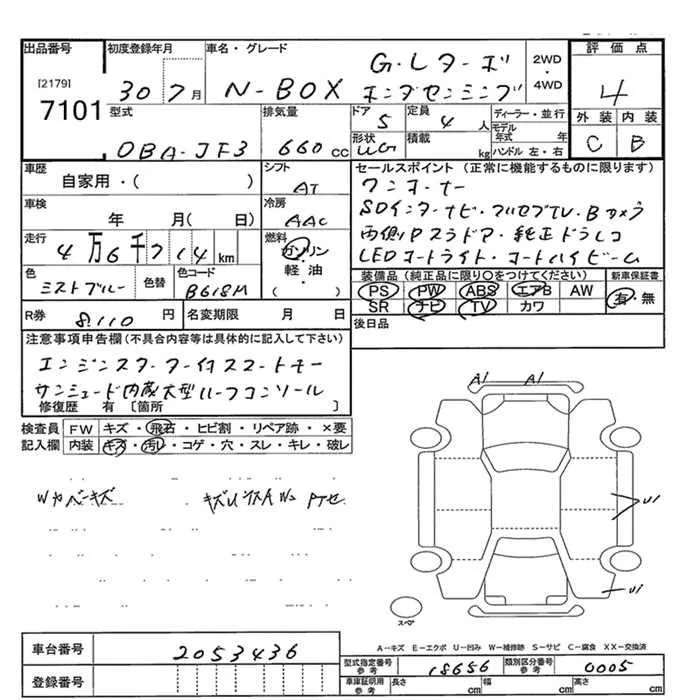 出品番号 初度登録年月 車名・グレード 2WD・4WD 評価点
[2179]
7101
30 7月 N-BOX G・Lターボ ホンダセンシング 4
型式 排気量 ドア 定員 ディーラー・並行 外装 内装
DBA-JF3 660cc 5 4人 モデル年式 年 C B
形状 積載 kg ハンドル 左・右
車歴 シフト セールスポイント (正常に機能するものに限ります)
自家用・( ) AT ワンオーナー
車検 冷房 SDインターナビ・フルセグTV・Bカメラ
年 月( 日) AAC 両側Pスラドア・純正ドラレコ
走行 燃料 LEDオートライト・オートハイビーム
4万6千714km ガソリン・軽油・( )
色 色替 色コード 装備品 (純正品に限り○をつけてください) 新車保証書
ミストブルー B618M PS PW ABS エアB AW 有・無
SR ナビ TV カワ
R券 8,110円 名変期限 月 日 後日品
注意事項申告欄 (不具合内容等は具体的に記入して下さい)
エンジンスターター付スマートキー
サンシェード内蔵大型ルーフコンソール
修復歴 有 [箇所 ]
検査員 FW キズ・飛石・ヒビ割・リペア跡・×要
記入欄 内装 キズ・汚レ・コゲ・穴・スレ・キレ・破レ
A1 A1
Wカバーキズ
U1
U1
スペア
A-キズ E-エクボ U-凹み W-補修跡 S-サビ C-腐食 XX-交換済
車台番号 2053436
型式指定番号 参考 18656 類別区分番号 参考 0005
登録番号
車庫証明用 参考 長さ cm 幅 cm 高さ cm